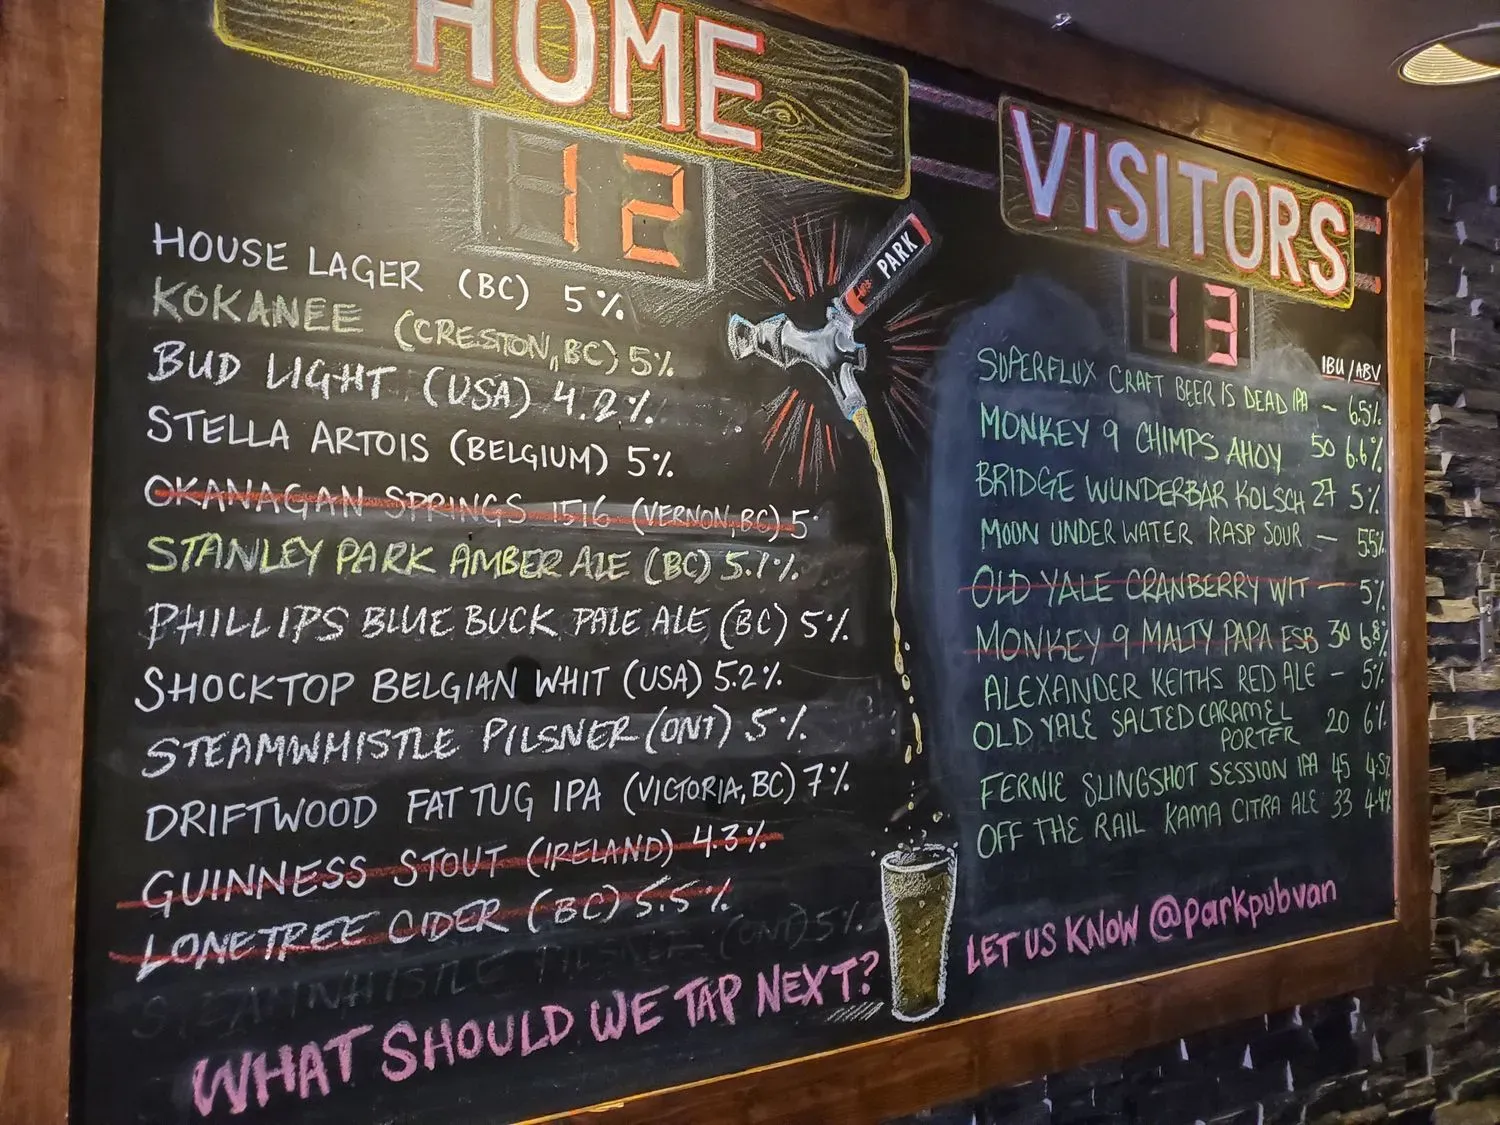 HOME
12
HOUSE LAGER (BC) 5%
KOKANEE (CRESTON, BC) 5%
BUD LIGHT (USA) 4.2%
STELLA ARTOIS (BELGIUM) 5%
OKANAGAN SPRINGS 1516 (VERNON, BC) 5
STANLEY PARK AMBER ALE (BC) 5.1%
PHILLIPS BLUE BUCK PALE ALE (BC) 5%
SHOCKTOP BELGIAN WHIT (USA) 5.2%
STEAMWHISTLE PILSNER (ONT) 5%
DRIFTWOOD FAT TUG IPA (VICTORIA, BC) 7%
GUINNESS STOUT (IRELAND) 4.3%
LONETREE CIDER (BC) 5.5%
STEAMWHISTLE PILSNER (ONT) 5%
WHAT SHOULD WE TAP NEXT?
PARK
VISITORS
13
IBU/ABV
SUPERFLUX CRAFT BEER IS DEAD IPA - 6.5%
MONKEY 9 CHIMPS AHOY 50 6.6%
BRIDGE WUNDERBAR KOLSCH 27 5%
MOON UNDER WATER RASP SOUR - 5.5%
OLD YALE CRANBERRY WIT - 5%
MONKEY 9 MALTY PAPA ESB 30 6.8%
ALEXANDER KEITHS RED ALE - 5%
OLD YALE SALTED CARAMEL
PORTER 20 6%
FERNIE SLINGSHOT SESSION IPA 45 4.5%
OFF THE RAIL KAMA CITRA ALE 33 4.4%
LET US KNOW @parkpubvan